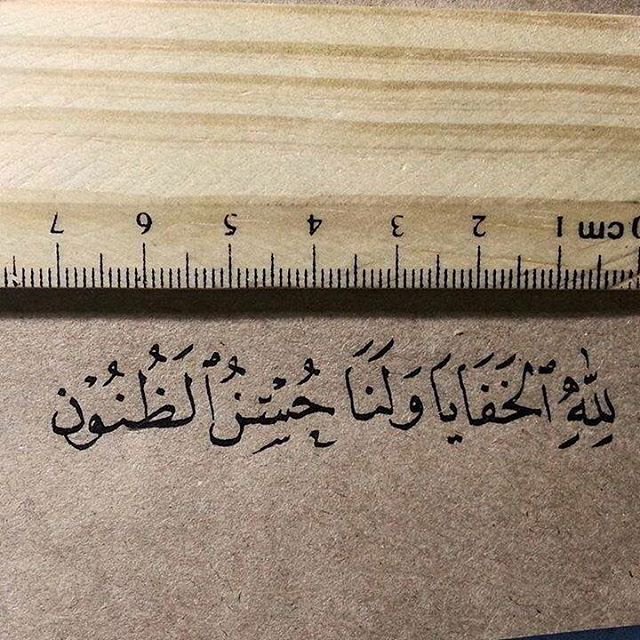 0 cm 1 2 3 4 5 6 7
لِلّٰهِ ٱلْخَفَايَا وَلَنَا حُسْنُ ٱلظُّنُوْن